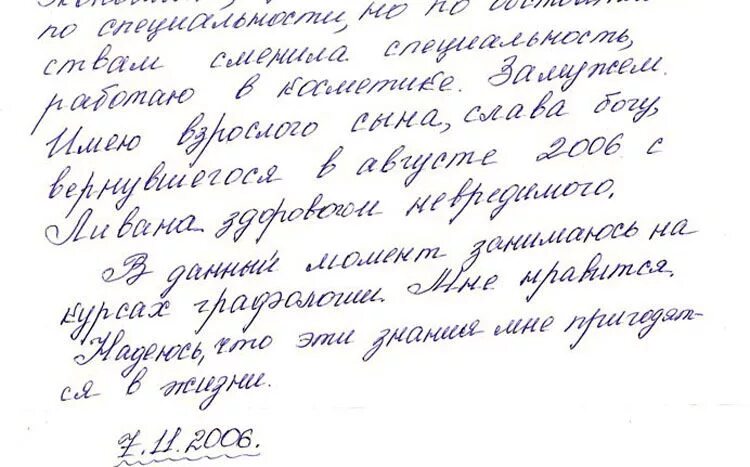 по специальности, но по обстоятель-
ствам сменила специальность,
работаю в косметике. Замужем.
Имею взрослого сына, слава богу,
вернувшегося в августе 2006 с
Ливана здоровым невредимого.
В данный момент занимаюсь на
курсах графологии. Мне нравится.
Надеюсь, что эти знания мне пригодят-
ся в жизни.
7.11.2006.